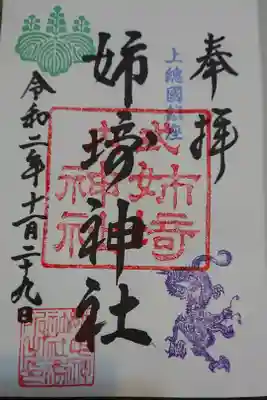 奉拝
上總國鎮座
姉埼神社
式内
姉埼
神社
令和二年十一月二十九日